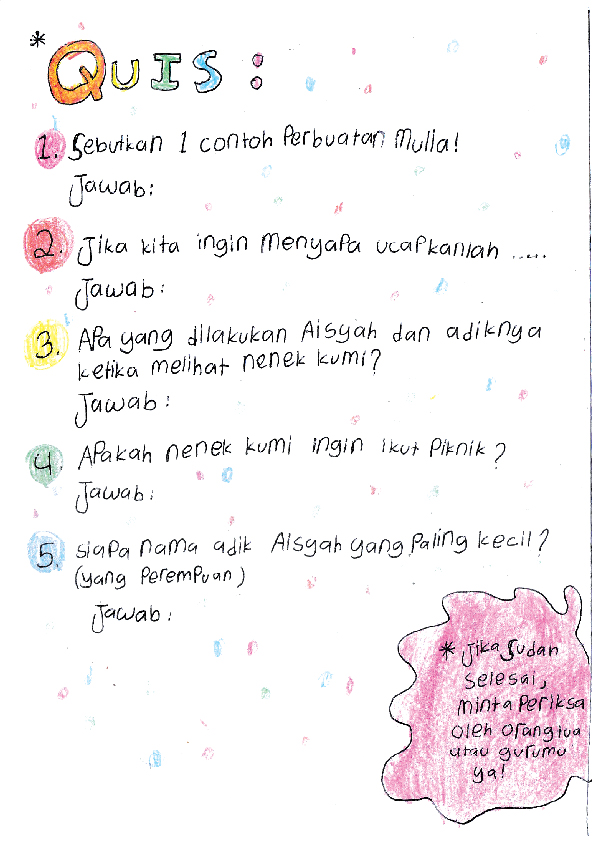 * QUIS :
1. Sebutkan 1 contoh Perbuatan Mulia!
Jawab:
2. Jika kita ingin menyapa ucapkanlah .....
Jawab:
3. Apa yang dilakukan Aisyah dan adiknya
ketika melihat nenek kumi?
Jawab:
4. Apakah nenek kumi ingin ikut Piknik?
Jawab:
5. siapa nama adik Aisyah yang Paling kecil?
(yang Perempuan)
Jawab:
* Jika Sudah
selesai,
minta Periksa
oleh orangtua
atau gurumu
ya!